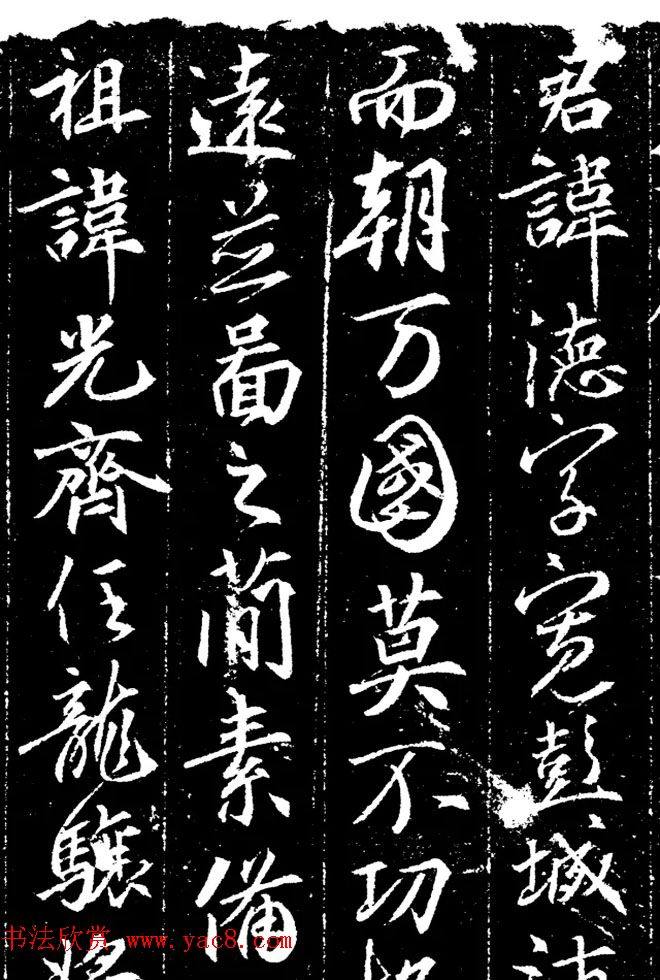 君諱德字寬彭城
而朝万國莫不切
遠茲啚之蕳素備
祖諱光齊任龍驤將
书法欣赏 www.yac8.com